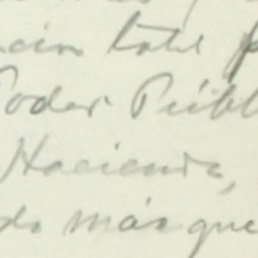 ción total p
Poder Públ
Hacienda,
do más que